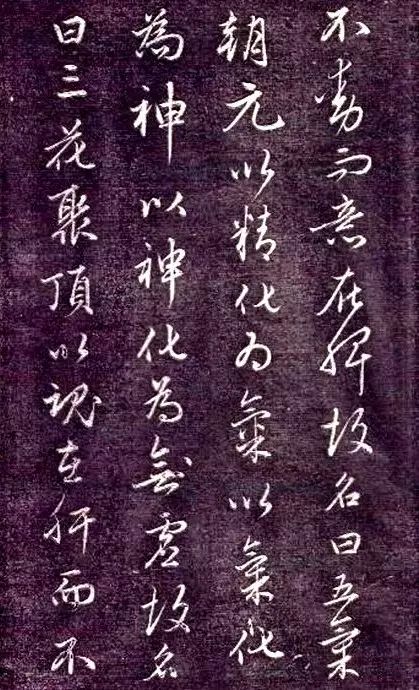 不動而意在脾故名曰五氣
朝元以精化為氣以氣化
為神以神化為無虛故名
曰三花聚頂以魂在肝而不